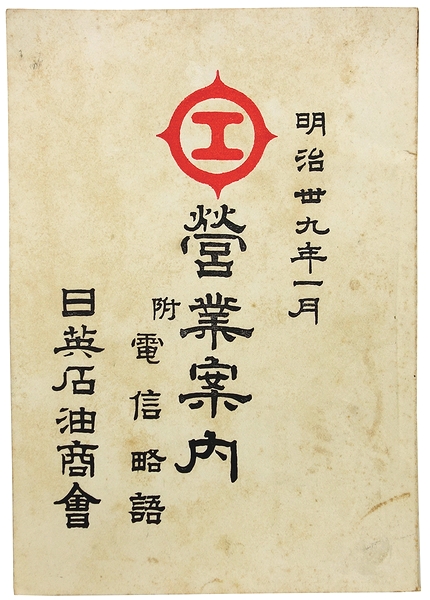 明治卅九年一月
工
營業案内
附
電信略語
日英石油商會